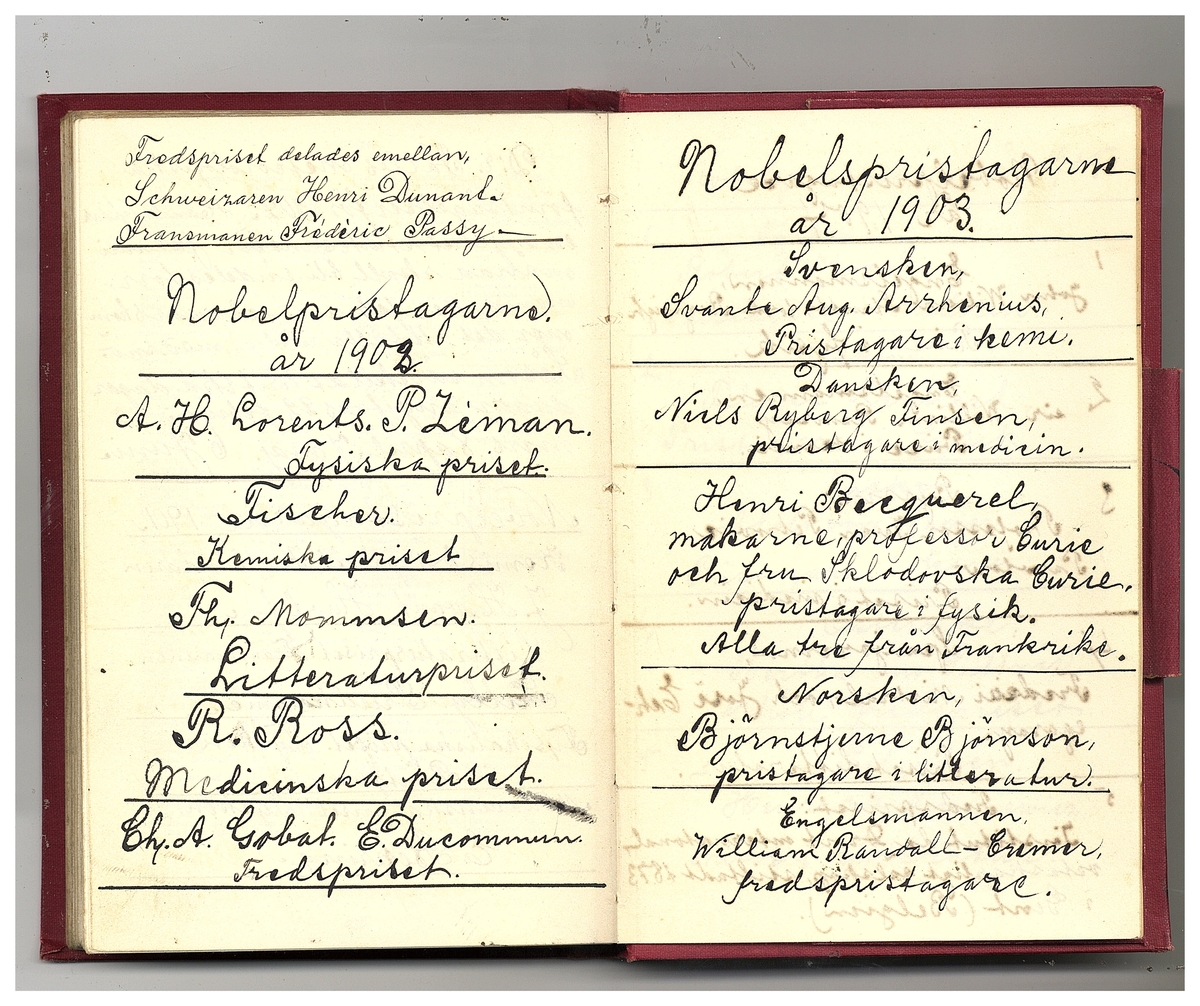 Fredspriset delades emellan,
Schweizaren Henri Dunant.
Fransmanen Frédéric Passy —
Nobelpristagarne.
år 1902.
A. H. Lorents. P. Zéman.
Fysiska priset.
Fischer.
Kemiska priset
Th. Mommsen.
Litteraturpriset.
R. Ross.
Medicinska priset.
Ch. A. Gobat. E. Ducommun.
Fredspriset.
Nobelspristagarne
år 1903.
Svensken,
Svante Aug. Arrhenius,
Pristagare i kemi.
Dansken,
Niels Ryberg Finsen,
pristagare i medicin.
Henri Becquerel,
makarne, professor Curie
och fru Sklodovska Curie.
pristagare i fysik.
Alla tre från Frankrike.
Norsken,
Björnstjerne Björnson,
pristagare i litteratur.
Engelsmannen,
William Randall-Cremer,
fredspristagare.